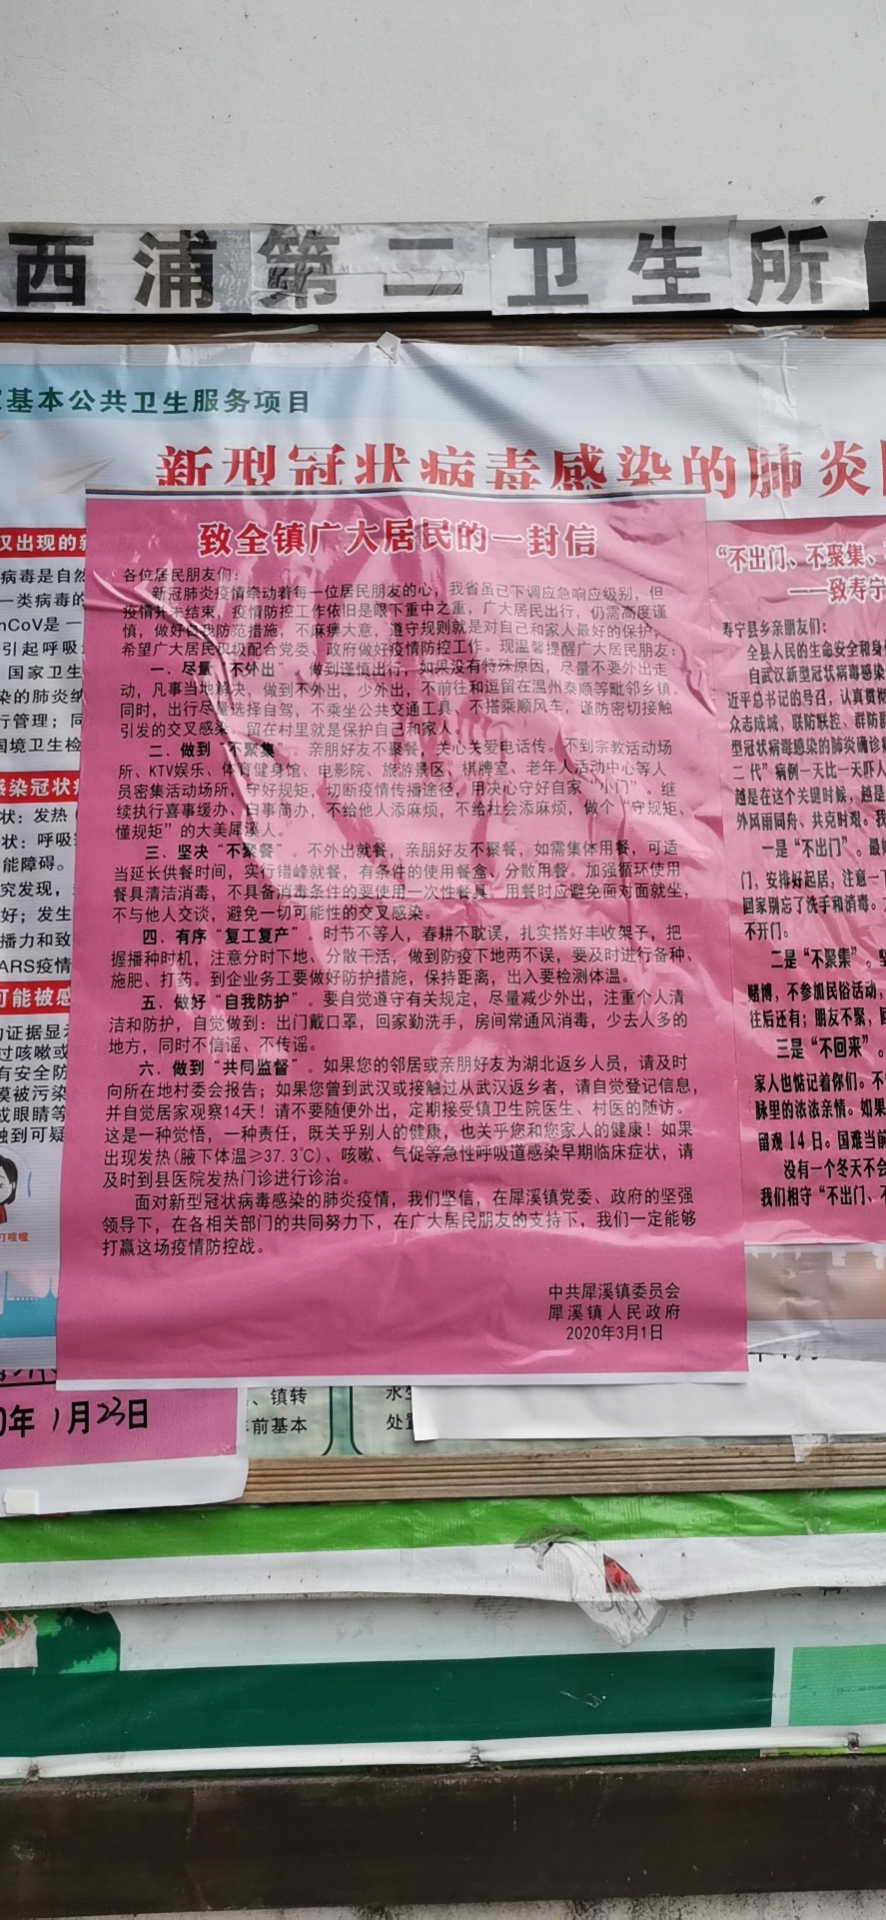 西浦第二卫生所
基本公共卫生服务项目
新型冠状病毒感染的肺炎
致全镇广大居民的一封信
各位居民朋友们：
新冠肺炎疫情牵动着每一位居民朋友的心，我省虽已下调应急响应级别，但
疫情并未结束，疫情防控工作依旧是眼下重中之重，广大居民出行，仍需高度谨
慎，做好自我防范措施，不麻痹大意，遵守规则就是对自己和家人最好的保护，
希望广大居民积极配合党委、政府做好疫情防控工作。现温馨提醒广大居民朋友：
一、尽量“不外出”。做到谨慎出行，如果没有特殊原因，尽量不要外出走
动，凡事当地解决，做到不外出，少外出，不前往和逗留在温州泰顺等毗邻乡镇。
同时，出行尽量选择自驾，不乘坐公共交通工具、不搭乘顺风车，谨防密切接触
引发的交叉感染，留在村里就是保护自己和家人。
二、做到“不聚集”。亲朋好友不聚餐，关心关爱电话传。不到宗教活动场
所、KTV娱乐、体育健身馆、电影院、旅游景区、棋牌室、老年人活动中心等人
员密集活动场所，守好规矩，切断疫情传播途径，用决心守好自家“小门”。继
续执行喜事缓办、白事简办，不给他人添麻烦，不给社会添麻烦，做个“守规矩、
懂规矩”的大美犀溪人。
三、坚决“不聚餐”。不外出就餐，亲朋好友不聚餐，如需集体用餐，可适
当延长供餐时间，实行错峰就餐，有条件的使用餐盒、分散用餐。加强循环使用
餐具清洁消毒，不具备消毒条件的要使用一次性餐具，用餐时应避免面对面就坐，
不与他人交谈，避免一切可能性的交叉感染。
四、有序“复工复产”。时节不等人，春耕不耽误，扎实搭好丰收架子，把
握播种时机，注意分时下地、分散干活，做到防疫下地两不误，要及时进行备种、
施肥、打药。到企业务工要做好防护措施，保持距离，出入要检测体温。
五、做好“自我防护”。要自觉遵守有关规定，尽量减少外出，注重个人清
洁和防护，自觉做到：出门戴口罩，回家勤洗手，房间常通风消毒，少去人多的
地方，同时不信谣、不传谣。
六、做到“共同监督”。如果您的邻居或亲朋好友为湖北返乡人员，请及时
向所在地村委会报告；如果您曾到武汉或接触过从武汉返乡者，请自觉登记信息，
并自觉居家观察14天！请不要随便外出，定期接受镇卫生院医生、村医的随访。
这是一种觉悟，一种责任，既关乎别人的健康，也关乎您和您家人的健康！如果
出现发热(腋下体温≥37.3℃)、咳嗽、气促等急性呼吸道感染早期临床症状，请
及时到县医院发热门诊进行诊治。
面对新型冠状病毒感染的肺炎疫情，我们坚信，在犀溪镇党委、政府的坚强
领导下，在各相关部门的共同努力下，在广大居民朋友的支持下，我们一定能够
打赢这场疫情防控战。
中共犀溪镇委员会
犀溪镇人民政府
2020年3月1日
汉出现的新
病毒是自然
一类病毒的
nCoV是一
引起呼吸
国家卫生
染的肺炎纳
行管理；同
国境卫生检
感染冠状
状：发热
状：呼吸
能障碍。
究发现，
好；发生
播力和致
ARS疫情
可能被感
的证据显示
过咳嗽或
有安全防
摸被污染
或眼睛等
触到可疑
打喷嚏
“不出门、不聚集、
——致寿宁
寿宁县乡亲朋友们：
全县人民的生命安全和身体
自武汉新型冠状病毒感染
近平总书记的号召，认真贯彻
众志成城，联防联控、群防群
型冠状病毒感染的肺炎确诊病
二代”病例一天比一天吓人
越是在这个关键时候，越是
外风雨同舟、共克时艰。我
一是“不出门”。最好
门，安排好起居，注意一下
回家别忘了洗手和消毒。
不开门。
二是“不聚集”。坚
赌博，不参加民俗活动，
往后还有；朋友不聚，
三是“不回来”。
家人也惦记着你们。不
脉里的浓浓亲情。如果
留观14日。国难当前
没有一个冬天不会
我们相守“不出门、不
0年1月23日
、镇转
年前基本
处置